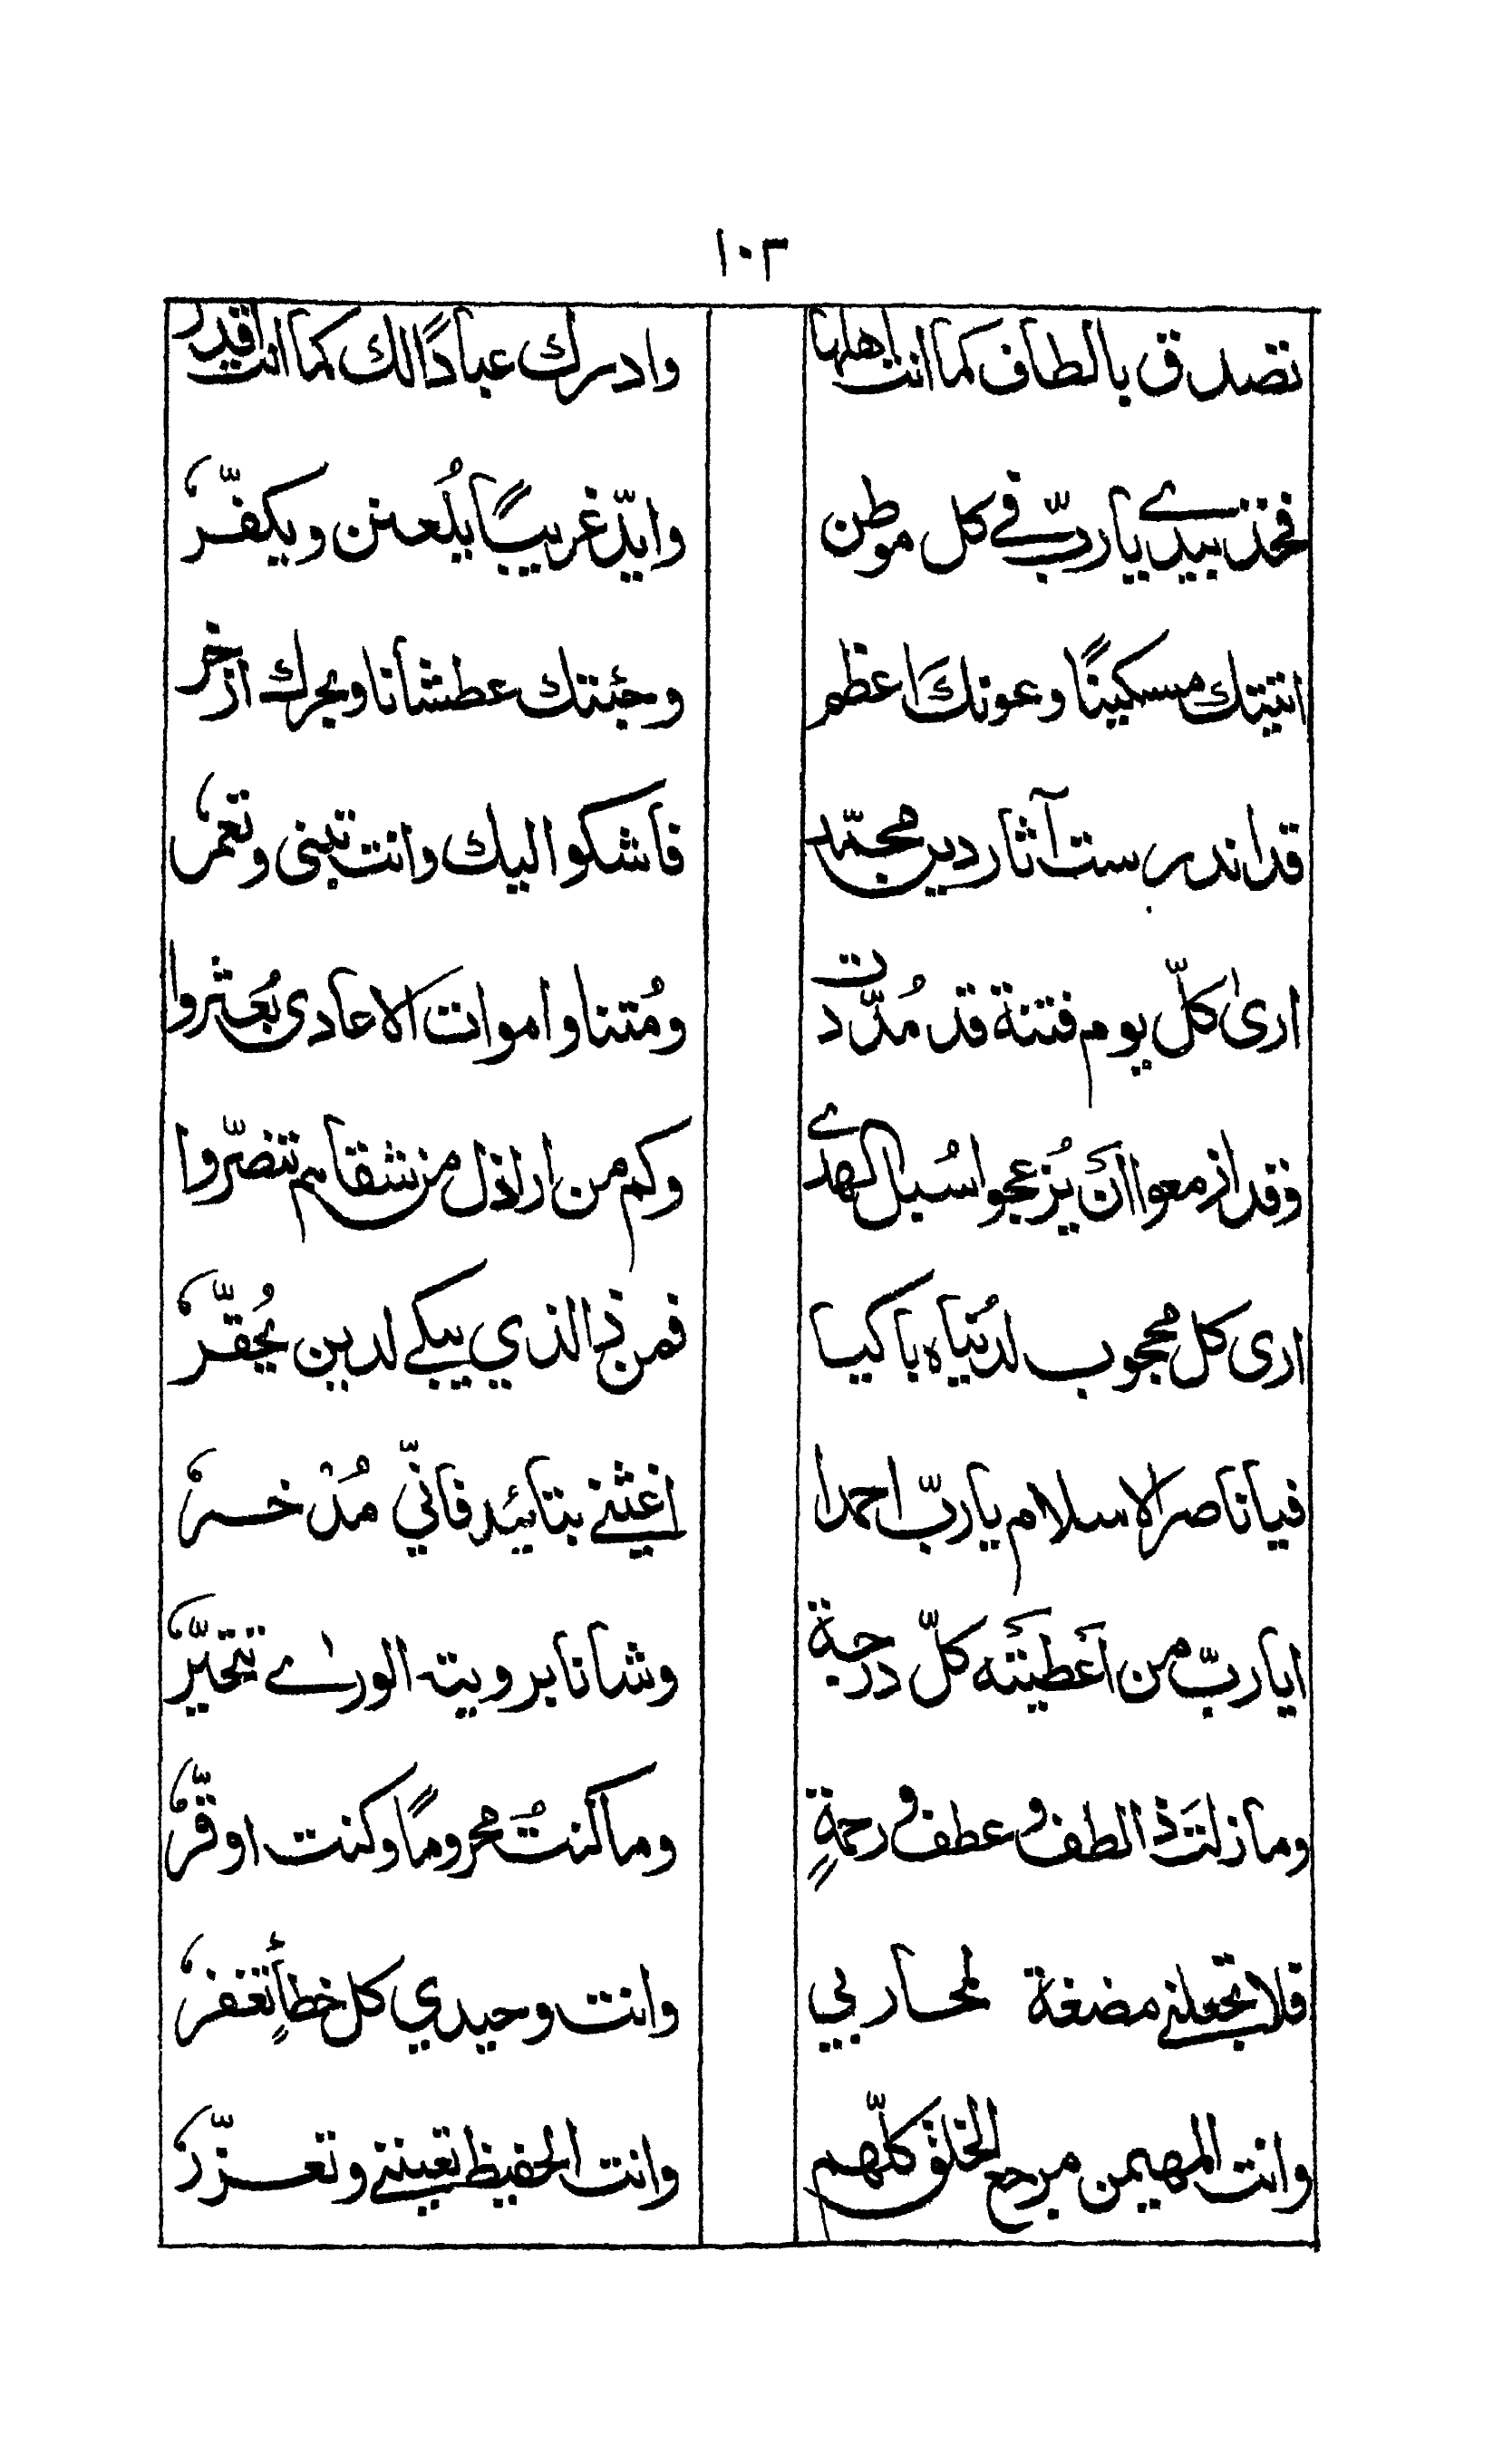 ١٠٣
تصدق بالطاف كما انت اهلها وادرك عبادًا لك كما انت اقدر
فخذ بيدے يا ربّ فے كل موطن وايّد غريبًا يُلعنن ويكفّرُ
اتيتك مسكينًا وعونك اعظم وجئتك عطشانا وبحرك ازخر
قد اندرست آثار دين محمّد فاشكوا اليك وانت تبنى وتعمرُ
ارىٰ كلّ يوم فتنة قد مُدّدت ومُتنا واموات الاعادى بُعثروا
وقد ازمعوا اَنْ يُزعجوا سُبل الهدے وكم من اراذل من شقاهم تنصّروا
ارى كل محجوب لدُنياه باكيا فمن ذا الذي يبكے لدين يُحقّرُ
فيا ناصر الاسلام يا ربّ احمدا اغثنے بتائيد فانّي مُدْخرُ
ايا ربّ من اَعْطيتَه كلّ درجة وشانا برويته الورٰے تتحيّرُ
وما زلتَ ذا لطف وعطف ورحمةٍ وما كنتُ محرومًا وكنت اوقّرُ
فلا تجعلنے مضغة لمحاربي وانت وحيدي كل خطأٍ تغفرُ
وانت المهيمن مرجع الخلق كلّهم وانت الحفيظ تعيننے وتعزّرُ